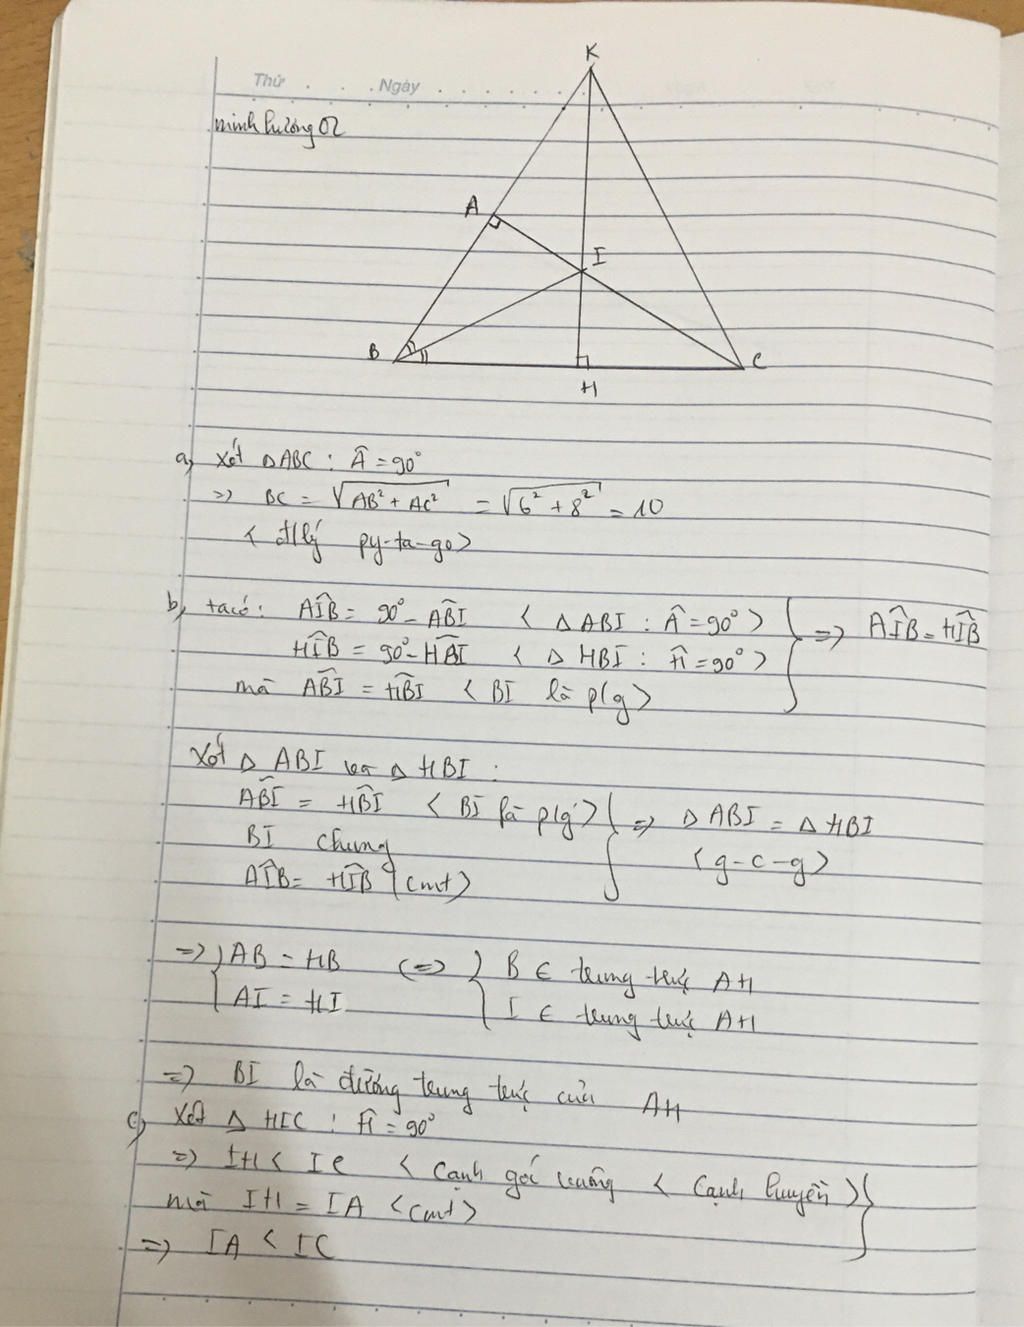 K
Thứ . . . Ngày . . . . . . .
minhhuong02
A
I
B
C
H
a, Xét ΔABC : Â = 90°
=> BC = √AB² + AC² = √6² + 8² = 10
< đ/lý py-ta-go>
b, ta có: AÎB = 90° - AB̂I < Δ ABI : Â = 90° >
HÎB = 90° - HB̂I < Δ HBI : Ĥ = 90° >
mà AB̂I = HB̂I < BI là p/g >
=> AÎB = HÎB
Xét Δ ABI và Δ HBI :
AB̂I = HB̂I < BI là p/g >
BI chung
AÎB = HÎB (cmt)
=> Δ ABI = Δ HBI
< g-c-g >
=> { AB = HB <=> { B ∈ trung trực AH
AI = HI I ∈ trung trực AH
=> BI là đường trung trực của AH
c, Xét Δ HIC : Ĥ = 90°
=> IH < IC < cạnh góc vuông < cạnh huyền >
mà IH = IA <cmt>
=> IA < IC